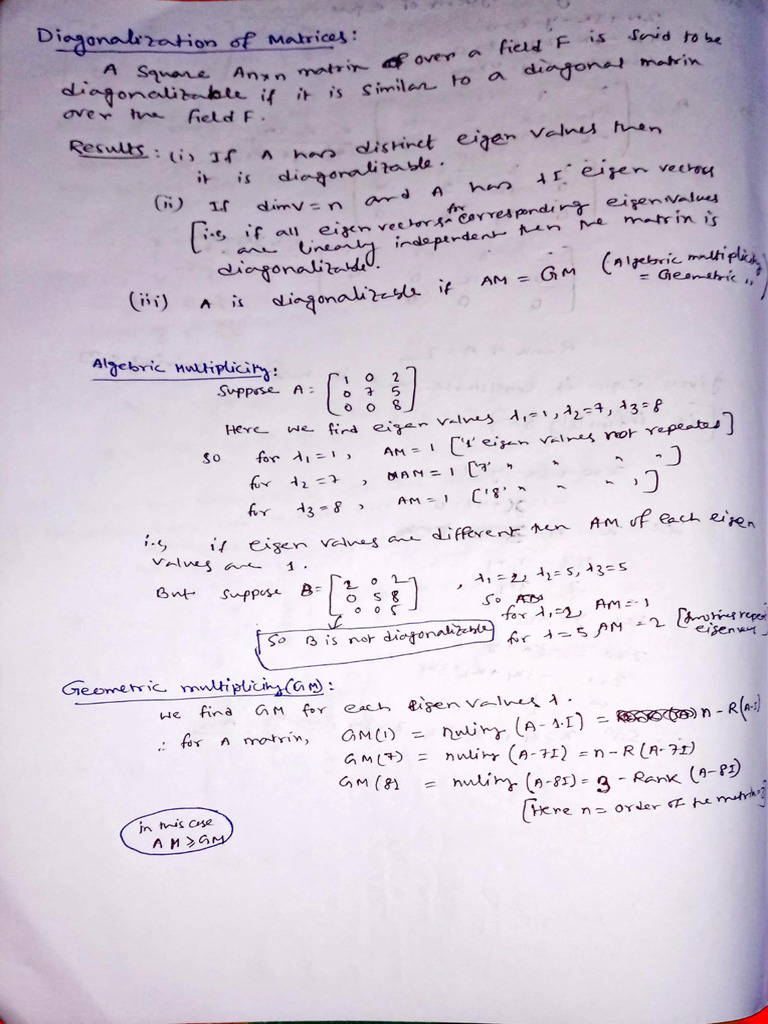 Diagonalization of Matrices:
A Square Anxn matrix over a field F is said to be
diagonalizable if it is similar to a diagonal matrix
over the field F.
Results: (i) If A has distinct eigen values then
it is diagonalizable.
(ii) If dimV=n and A has LI eigen vectors
[i.e, if all eigen vectors for corresponding eigenvalues
are linearly independent then the matrix is
diagonalizable.
(iii) A is diagonalizable if AM = GM (Algebric multiplicity
= Geometric ")
Algebric Multiplicity:
Suppose A = [1 0 2
0 7 5
0 0 8]
Here we find eigen values λ1=1, λ2=7, λ3=8
So for λ1=1, AM=1 ['1' eigen values not repeated]
for λ2=7, AM=1 ['7' " " " "]
for λ3=8, AM=1 ['8' " " " ,]
i.e, if eigen values are different then AM of each eigen
values are 1.
But suppose B= [2 0 2
0 5 8
0 0 5], λ1=2, λ2=5, λ3=5
So
for λ1=2, AM=1
for λ=5 AM=2
So B is not diagonalizable
Geometric multiplicity (GM):
We find GM for each eigen values λ.
∴ for A matrix, GM(1) = nulity (A-1.I) = n-R(A-I)
GM(7) = nulity (A-7I) = n-R(A-7I)
GM(8) = nulity (A-8I) = 3 - Rank (A-8I)
[Here n= order of the matrix]
in this case
AM ≥ GM